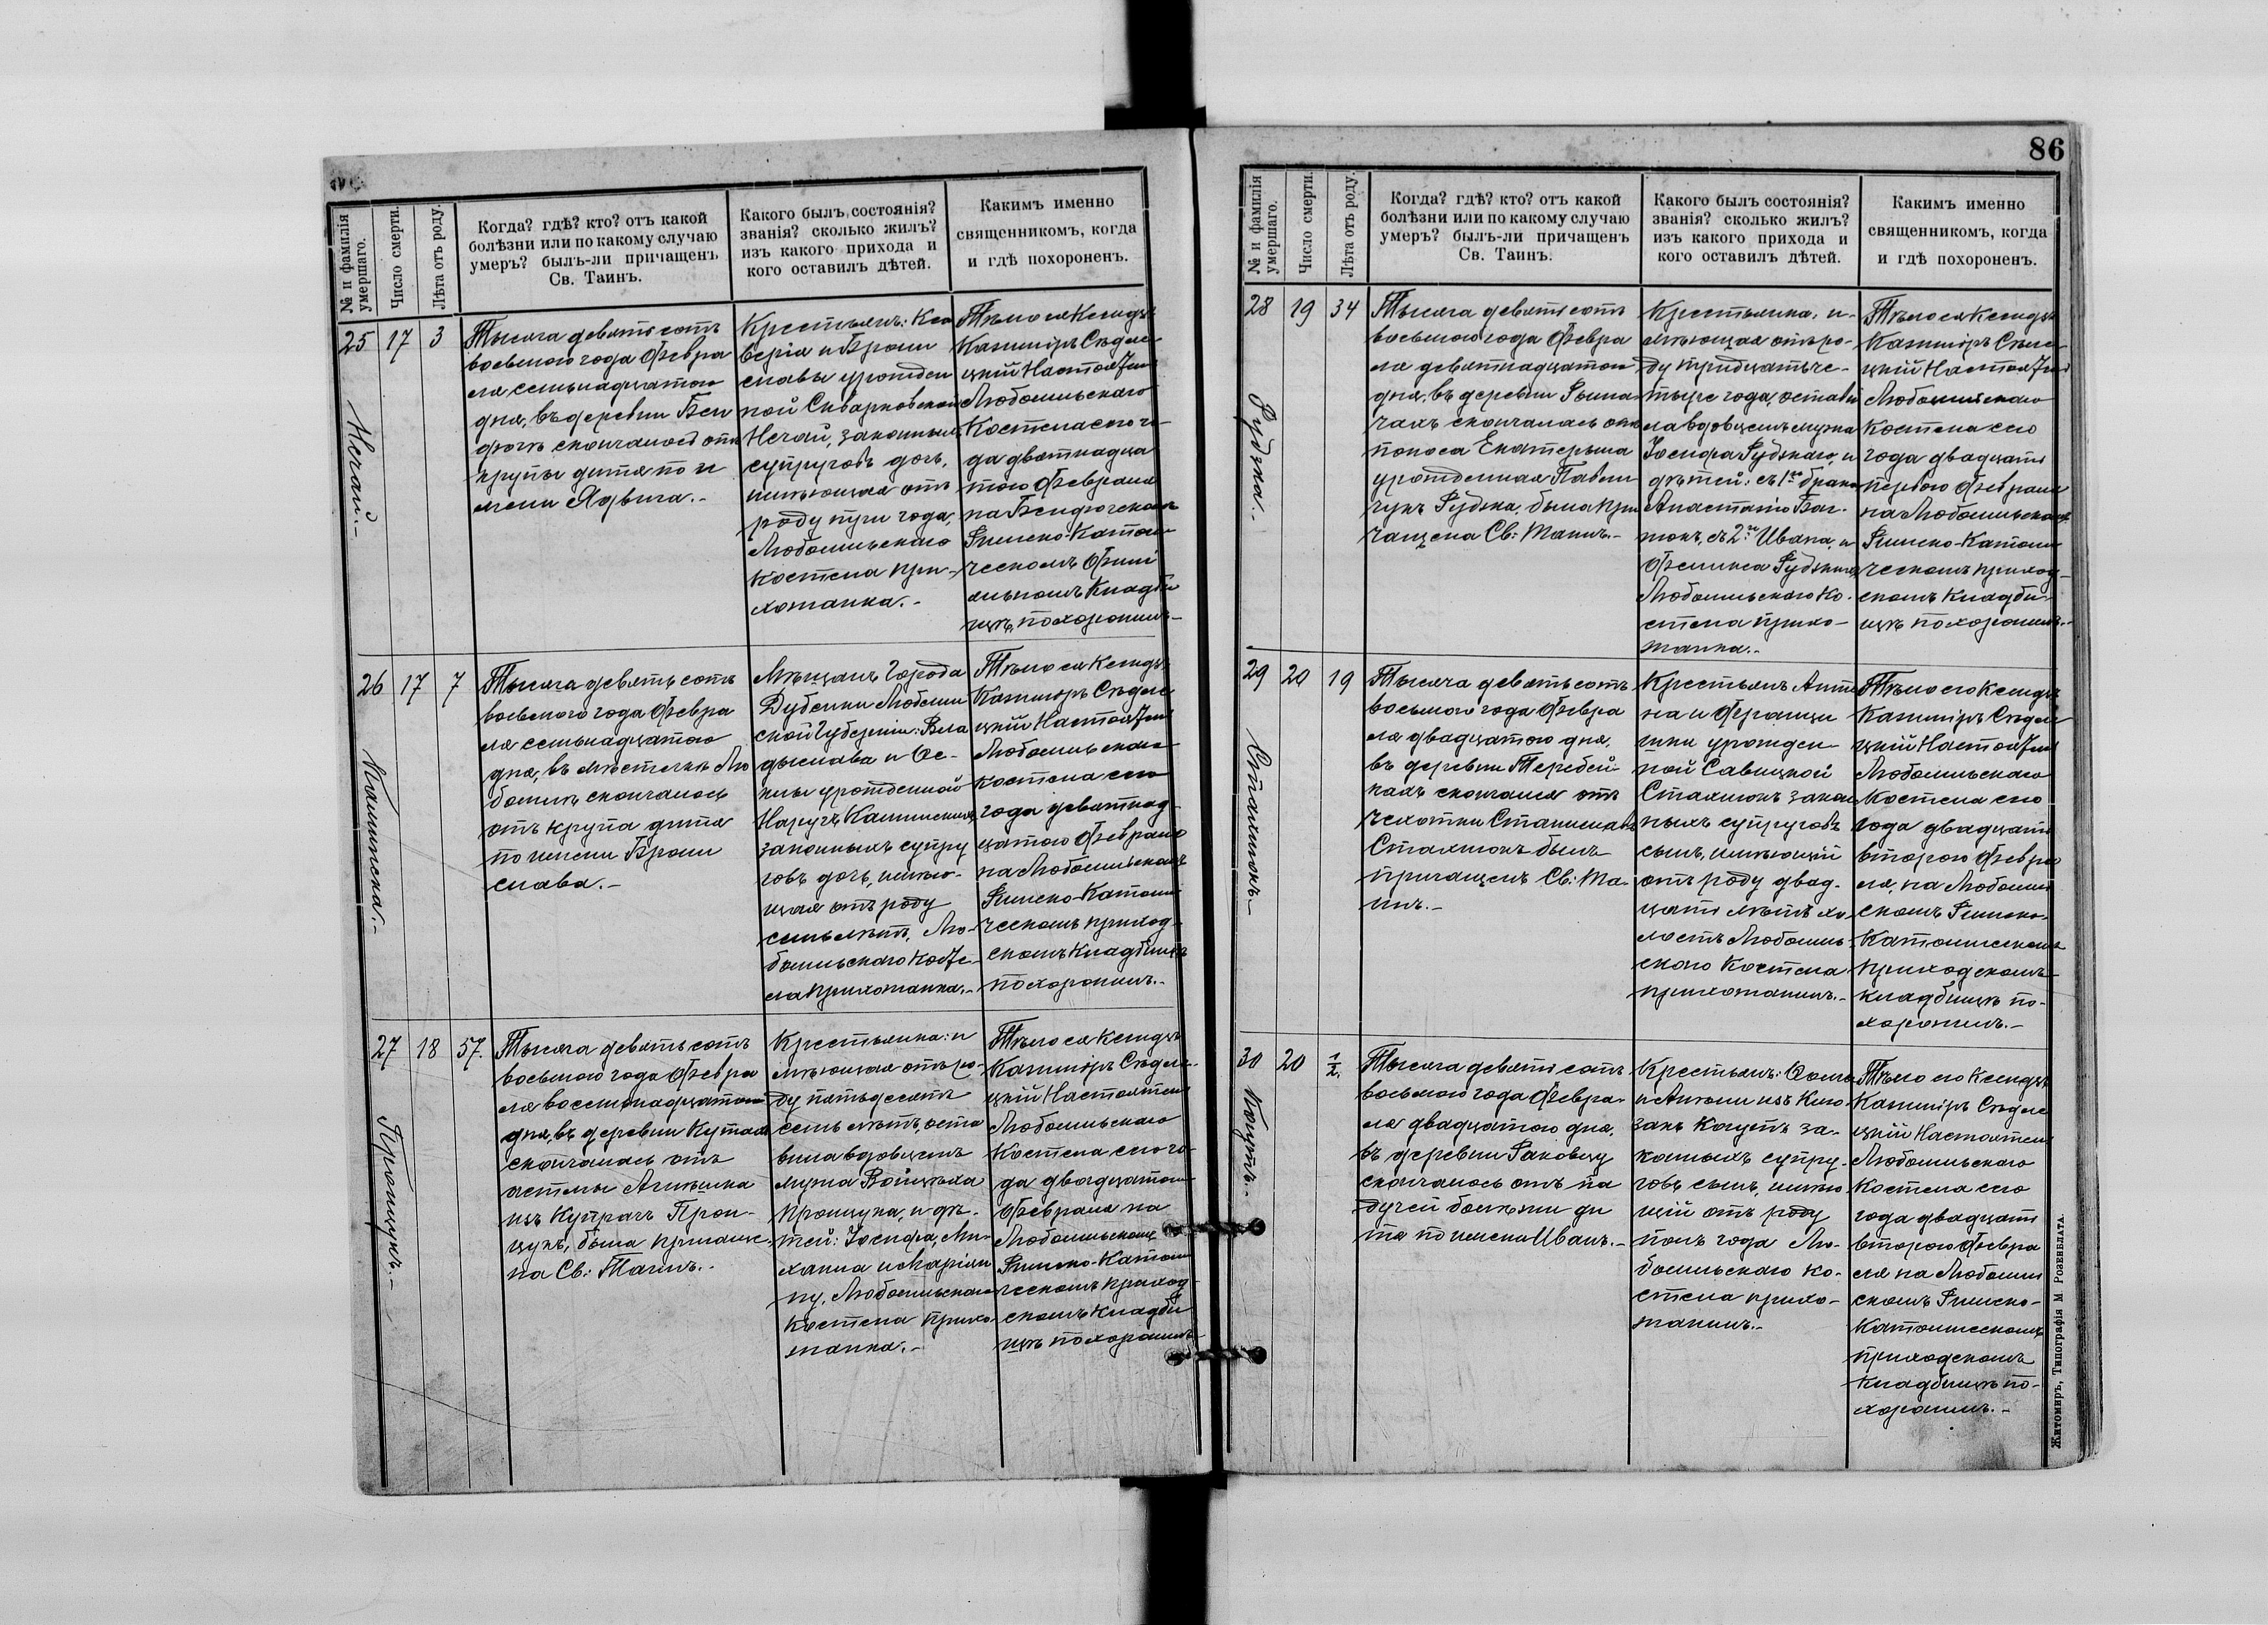 № и фамилія
умершаго.
Число смерти.
Лѣта отъ роду.
Когда? гдѣ? кто? отъ какой
болѣзни или по какому случаю
умеръ? былъ-ли причащенъ
Св. Таинъ.
Какого былъ состоянія?
званія? сколько жилъ?
изъ какого прихода и
кого оставилъ дѣтей.
Какимъ именно
священникомъ, когда
и гдѣ похороненъ.
25
Нечай.-
17
3
Тысяча девятьсотъ
восьмого года Февра
ля семьнадцатого
дня, въ деревни
скончалось отъ
крупы дитя по и
мени Ядвига.-
Крестьянъ: Кса
верія и Брони
славы урожден
ной Скварковской
Нечай, законныхъ
супруговъ дочь,
имѣющая отъ
роду три года,
Любомльскаго
Костела при-
хожанка.-
Тѣло ея Ксендзъ
Казиміръ
цкій Настоятель
Любомльскаго
Костела сего го-
да девятнадца
того Февраля
на Бендюгскомъ
Римско-Католи
ческомъ Филі
альномъ Кладби
щѣ похоронилъ.-
26
Калинска.-
17
7
Тысяча девятьсотъ
восьмого года Февра
ля семьнадцатого
дня, въ мѣстечкѣ Лю
бомлѣ скончалось
отъ крупа дитя
по имени Брони
слава.-
Мѣщанъ Города
Дубенки Люблин
ской Губерніи: Вла
дислава и
урожденной
Калинскихъ,
законныхъ супру
говъ дочь, имѣю-
щая отъ роду
семь лѣтъ, Лю-
бомльскаго Косте-
ла прихожанка.-
Тѣло ея Ксендзъ
Казиміръ
цкій Настоятель
Любомльскаго
Костела сего
года девятнад-
цатого Февраля
на Любомльскомъ
Римско-Католи
ческомъ приход-
скомъ Кладбищѣ
похоронилъ.-
27
Пронцукъ.-
18
57.
Тысяча девятьсотъ
восьмого года Февра
ля восемнадцатого
дня, въ деревни
скончалась отъ
астмы
изъ Прон-
цукъ, была причаще-
на Св: Таинъ.-
Крестьянка: и
мѣющая отъ ро-
ду пятьдесятъ
семь лѣтъ, оста
вила вдовцемъ
мужа Войцѣха
Пронцука, и дѣ-
тей: Іосифа, Ми-
хаила и Маріан
ну, Любомльскаго
Костела прихо
жанка.-
Тѣло ея Ксендзъ
Казиміръ
цкій Настоятель
Любомльскаго
Костела сего го-
да двадцатого
Февраля на
Любомльскомъ
Римско-Католи
ческомъ приход-
скомъ Кладби
щѣ похоронилъ.-
86
№ и фамилія
умершаго.
Число смерти.
Лѣта отъ роду.
Когда? гдѣ? кто? отъ какой
болѣзни или по какому случаю
умеръ? былъ-ли причащенъ
Св. Таинъ.
Какого былъ состоянія?
званія? сколько жилъ?
изъ какого прихода и
кого оставилъ дѣтей.
Какимъ именно
священникомъ, когда
и гдѣ похороненъ.
28
Рудзка.-
19
34
Тысяча девятьсотъ
восьмого года Февра
ля девятнадцатого
дня, въ деревни
скончалась отъ
поноса Екатерина
урожденная
Рудзка, была при
чащена Св: Таинъ.-
Крестьянка, и-
мѣющая отъ ро-
ду тридцать че-
тыре года, остави
ла вдовцемъ мужа
Іосифа Рудзкаго, и
дѣтей: съ 1го брака
Анастасію
съ 2го Ивана, и
Феликса Рудзкихъ,
Любомльскаго Ко-
стела прихо-
жанка.-
Тѣло ея Ксендзъ
Казиміръ
цкій Настоятель
Любомльскаго
Костела сего
года двадцать
перваго Февраля
на Любомльскомъ
Римско-Католи
ческомъ приход-
скомъ Кладби-
щѣ похоронилъ.-
29
Стахнюкъ.-
20
19
Тысяча девятьсотъ
восьмого года Февра
ля двадцатого дня,
въ деревни Теребей-
кахъ скончался отъ
чахотки Станиславъ
Стахнюкъ былъ
причащенъ Св: Та-
инъ.-
Крестьянъ Анто
на и Францы
шки урожден-
ной Савицкой
Стахнюкъ закон
ныхъ супруговъ
сынъ, имѣющій
отъ роду двад-
цать лѣтъ хо-
лостъ Любомль-
скаго Костела
прихожанинъ.-
Тѣло его Ксендзъ
Казиміръ
цкій Настоятель
Любомльскаго
Костела сего
года двадцать
второго Февра
ля, на Любомль
скомъ Римско-
Католическомъ
приходскомъ
кладбищѣ по-
хоронилъ.-
30
Когутъ.-
20
1/2.
Тысяча девятьсотъ
восьмого года Февра-
ля двадцатого дня,
въ деревни Раковцу
скончалось отъ па
дучей болѣзни ди
тя по имени Иванъ.-
Крестьянъ: Фомы
и изъ
Когутъ за-
конныхъ супру-
говъ сынъ, имѣю
щій отъ роду
полъ года Лю-
бомльскаго Ко-
стела прихо-
жанинъ.-
Тѣло его Ксендзъ
Казиміръ
цкій Настоятель
Любомльскаго
Костела сего
года двадцать
второго Февра
ля на Любомль
скомъ Римско-
Католическомъ
приходскомъ
кладбищѣ по-
хоронилъ.-
Житомиръ, Типографія М. Розенблата.